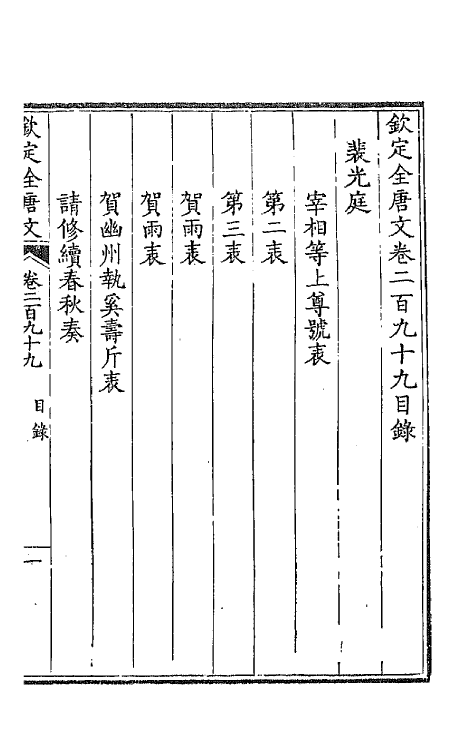 欽定全唐文卷二百九十九目錄
裴光庭
宰相等上尊號表
第二表
第三表
賀雨表
賀雨表
賀幽州執奚壽斤表
請修續春秋奏
欽定全唐文
卷二百九十九
目錄
一